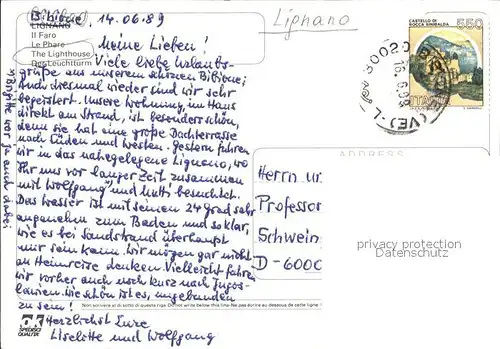 Bibione, 14.06.89
Lignano
LIGNANO
Il Faro
Le Phare
The Lighthouse
Der Leuchtturm
Meine Lieben!
Viele liebe Urlaubs-
grüße aus unserem schönen Bibione;
Auch diesmal wieder sind wir sehr
begeistert. Unsere Wohnung, im Haus
direkt am Strand, ist besonders schön,
denn sie hat eine große Dachterrasse
nach Süden und Westen. Gestern fuhren
wir in das nahegelegene Lignano, wo
Ihr uns vor langer Zeit zusammen
mit Wolfgang und Mutti besuchtet.
Das Wasser ist mit seinen 24 Grad sehr
angenehm zum Baden und so klar,
wie es bei Sandstrand überhaupt
nur sein kann. Wir mögen gar nicht
an Heimreise denken. Vielleicht fahren
wir vorher auch noch kurz nach Jugos-
lawien. Wie schön ist es, ungebunden
zu sein!
Herzlichst Eure
Liselotte und Wolfgang
x) Brigitte war ja auch dabei
Non scrivere al di sotto di questa riga Do not write below this line Ne pas écrire au dessous de cette ligne
OK
SPEDISCI
QUALITÀ
CASTELLO DI
ROCCA SINIBALDA
550
ITALIA
16.6.89
(VE)
ADDRESS
Herrn
Professor
Schwein
D-6000
privacy protection
Datenschutz